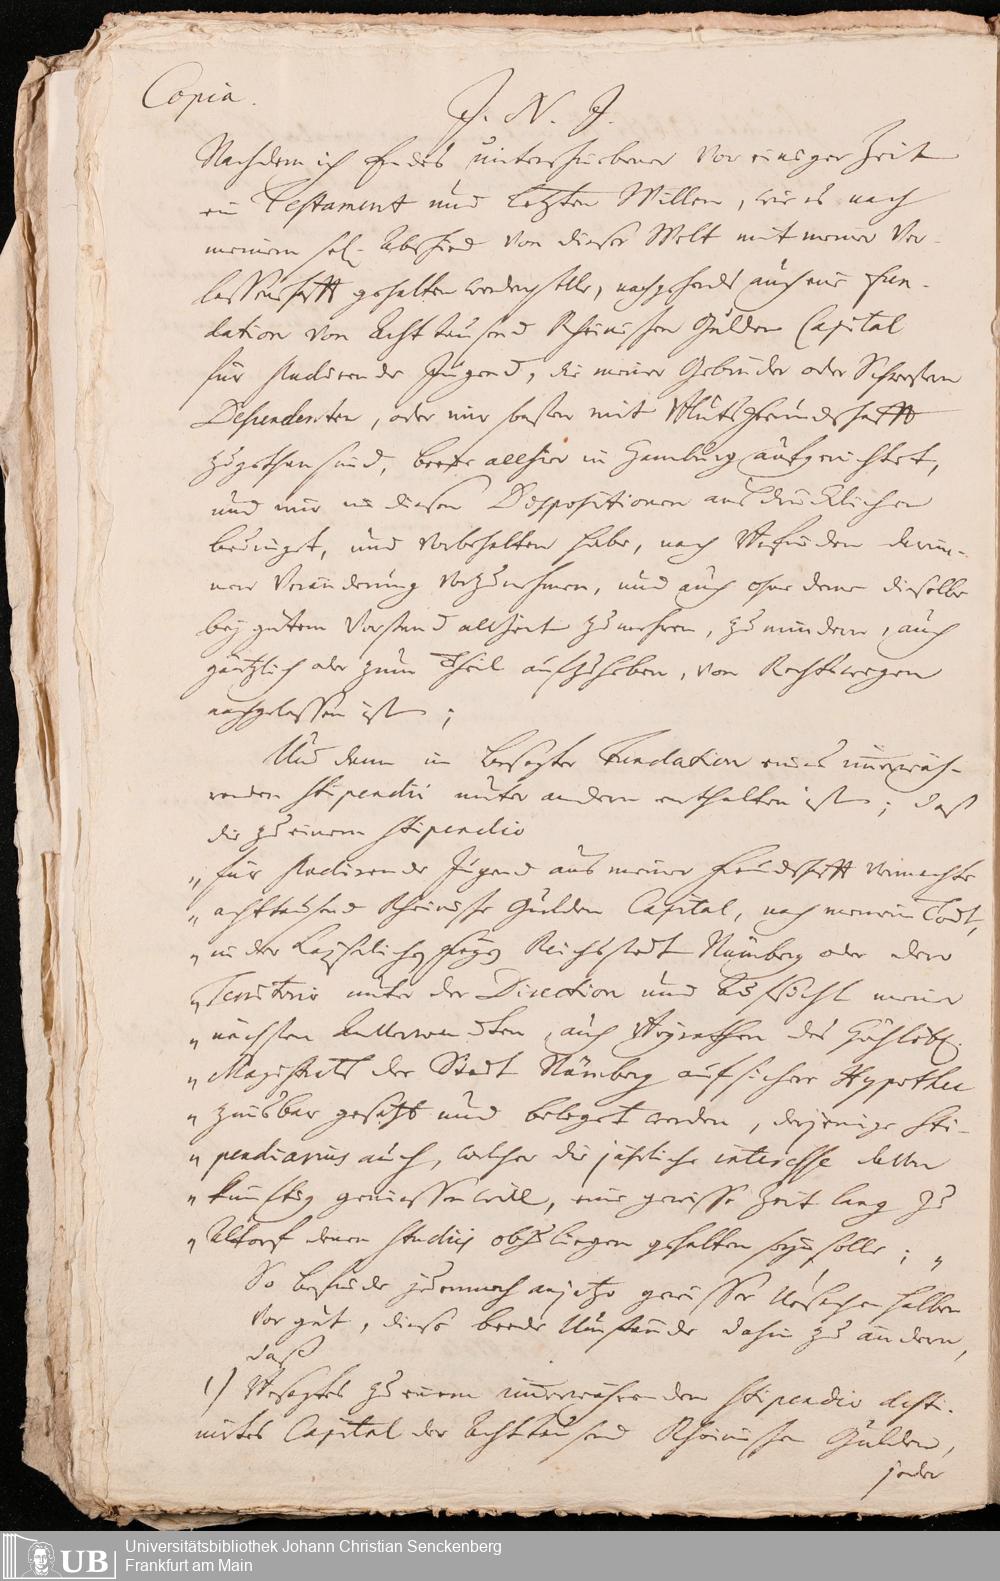 Copia.
J. N. J.
Nachdem ich Endes unterschriebener vor einiger Zeit
ein Testament und letzten Willen, wie es nach
meinem sel. Abschied von dieser Welt mit meiner Ver-
lassenschafft gehalten werden solle, nachgehends auch eine Fun-
dation von Acht tausend Rheinischen Gulden Capital
für studirende Jugend, die meiner Gebrüder oder Schwestern
Descendenten, oder mir sonsten mit Blutsfreundschafft
zugethan sind, beede allhier in Hamburg aufgerichtet,
und mir in diesen Dispositionen ausdrücklichen
bedinget, und vorbehalten habe, nach Befinden darin-
nen Veränderung vorzunehmen, und auch ohne deme dieselbe
bey gutem Verstand allzeit zu mehren, zu mindern, auch
gäntzlich oder zum Theil aufzuheben, von Rechtswegen
nachgelassen ist;
Und dann in besagter Fundation eines immerwäh-
renden Stipendii unter andern enthalten ist; daß
die zu einem Stipendio
„ für studirende Jugend aus meiner Freundschafft vermachte
„ achttausend Rheinische Gulden Capital, nach meinem Todt,
„ in der Kayserlichen freyen Reichsstadt Nürnberg oder dero
„ Territorio unter der Direction und Aufsicht meiner
„ nächsten Anverwandten, auch Beyrathen des Hochlöbl.
„ Magistrats der Stadt Nürnberg auf sichere Hypothec
„ zinsbar gesetzt und beleget werden, derjenige Sti-
„ pendiarius auch, welcher die jährliche interesse davon
„ künftig geniessen will, eine gewisse Zeit lang zu
„ Altorf denen studiis obzuliegen gehalten seyn solle; „
So befinde jedennoch anjetzo gewisser Ursachen halben
vor gut, diese beede Umstände dahin zu ändern,
daß
1) Besagtes zu einem immerwährendem Stipendio desti-
nirtes Capital der Acht tausend Rheinischen Gulden,
jeder
Universitätsbibliothek Johann Christian Senckenberg
UB Frankfurt am Main